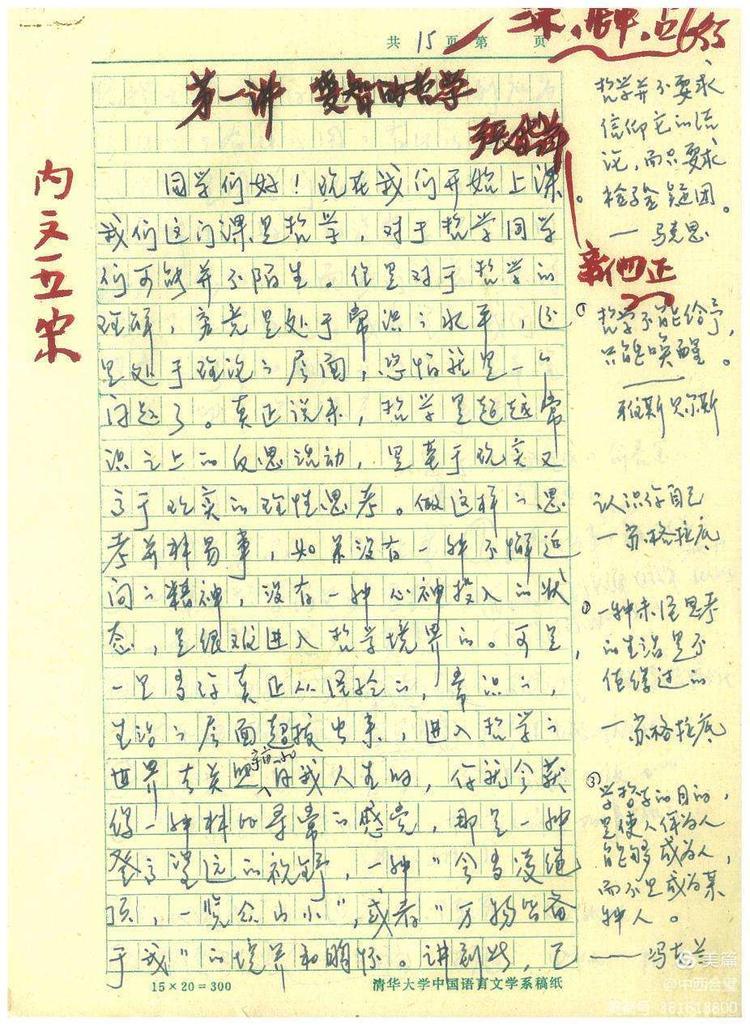 共 15 页 第 页
第一讲 爱智的哲学
内文五宋
同学们好！现在我们开始上课。
我们这门课是哲学，对于哲学同学
们可能并不陌生。但是对于哲学的
理解，究竟是处于常识之水平，还
是处于理论之层面，恐怕就是一个
问题了。真正说来，哲学是超越常
识之上的反思活动，是基于现实又
高于现实的理性思考。做这样的思
考并非易事，如果没有一种不懈追
问之精神，没有一种心神投入的状
态，是很难进入哲学境界的。可是，
一旦当你真正从经验的，常识的，
生活之层面超拔出来，进入哲学之
世界去关照自我人生时，你就会获
得一种非同寻常的感觉，那是一种
登高望远的视野，一种“会当凌绝
顶，一览众山小”，或者“万物皆备
于我”的境界和胸怀。讲到此，已
15×20=300
清华大学中国语言文学系稿纸
哲学并不要求
信仰它的结
论，而只要求
检验疑团。
—马克思
①
哲学不能给予，
只能唤醒。
雅斯贝尔斯
认识你自己
—苏格拉底
②
一种未经思考
的生活是不
值得过的
—苏格拉底
③
学哲学的目的，
是使人作为人
能够成为人，
而不是成为某
种人。
——冯友兰
美篇
@中西合璧